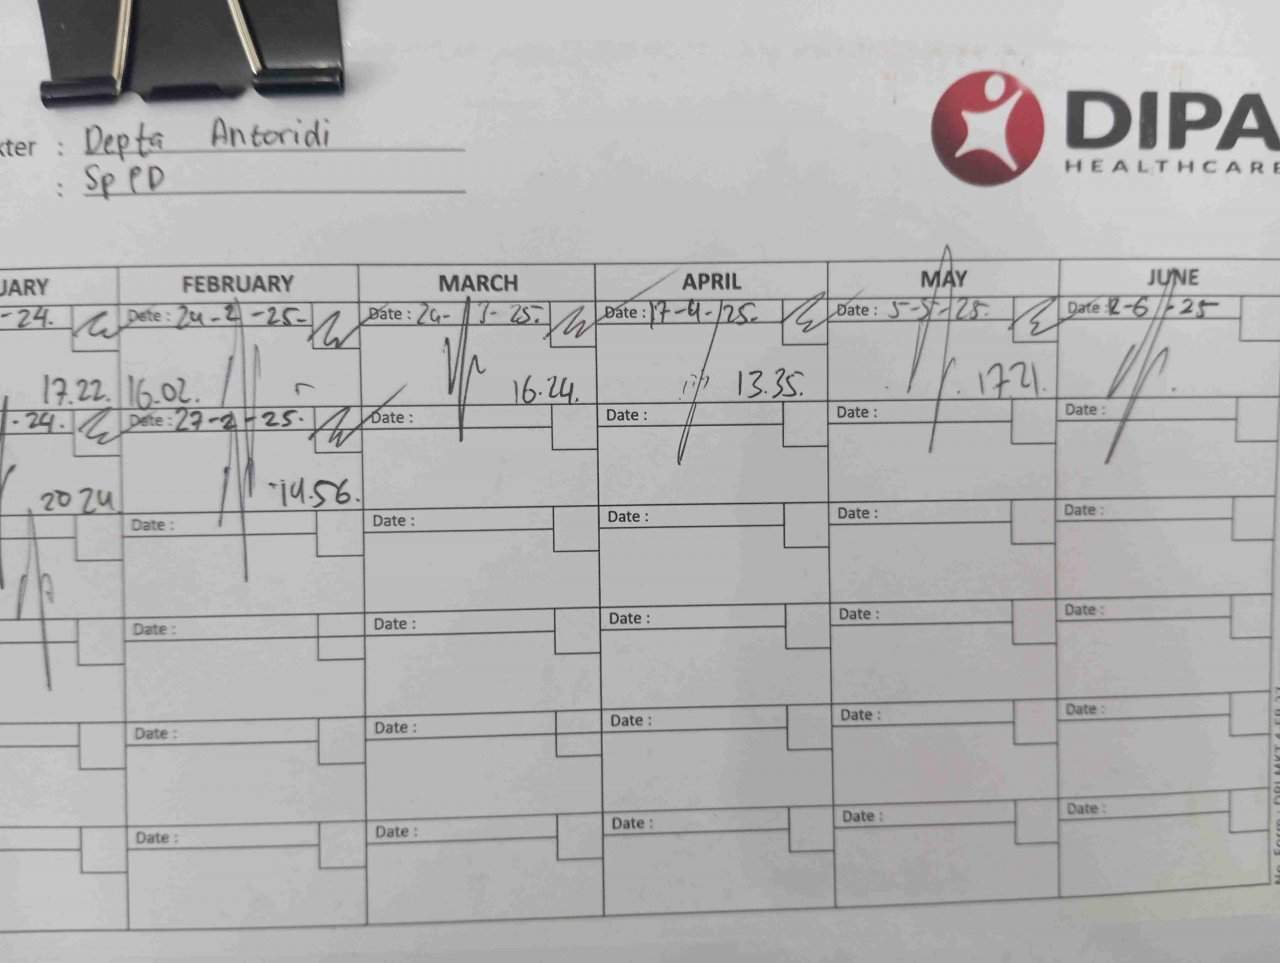 DIPA
HEALTHCARE
kter : Depta Antoridi
: Sp PD
UARY FEBRUARY MARCH APRIL MAY JUNE
-24. Date : 24-2-25. Date : 24-3-25. Date : 17-4-25. Date : 5-5-25. Date : 2-6-25
17.22. 16.02. 16.24. 13.35. 17.21.
-24. Date : 27-2-25. Date : Date : Date : Date :
20 24 14.56.
Date : Date : Date : Date : Date :
Date : Date : Date : Date : Date :
Date : Date : Date : Date : Date :
Date : Date : Date : Date : Date :